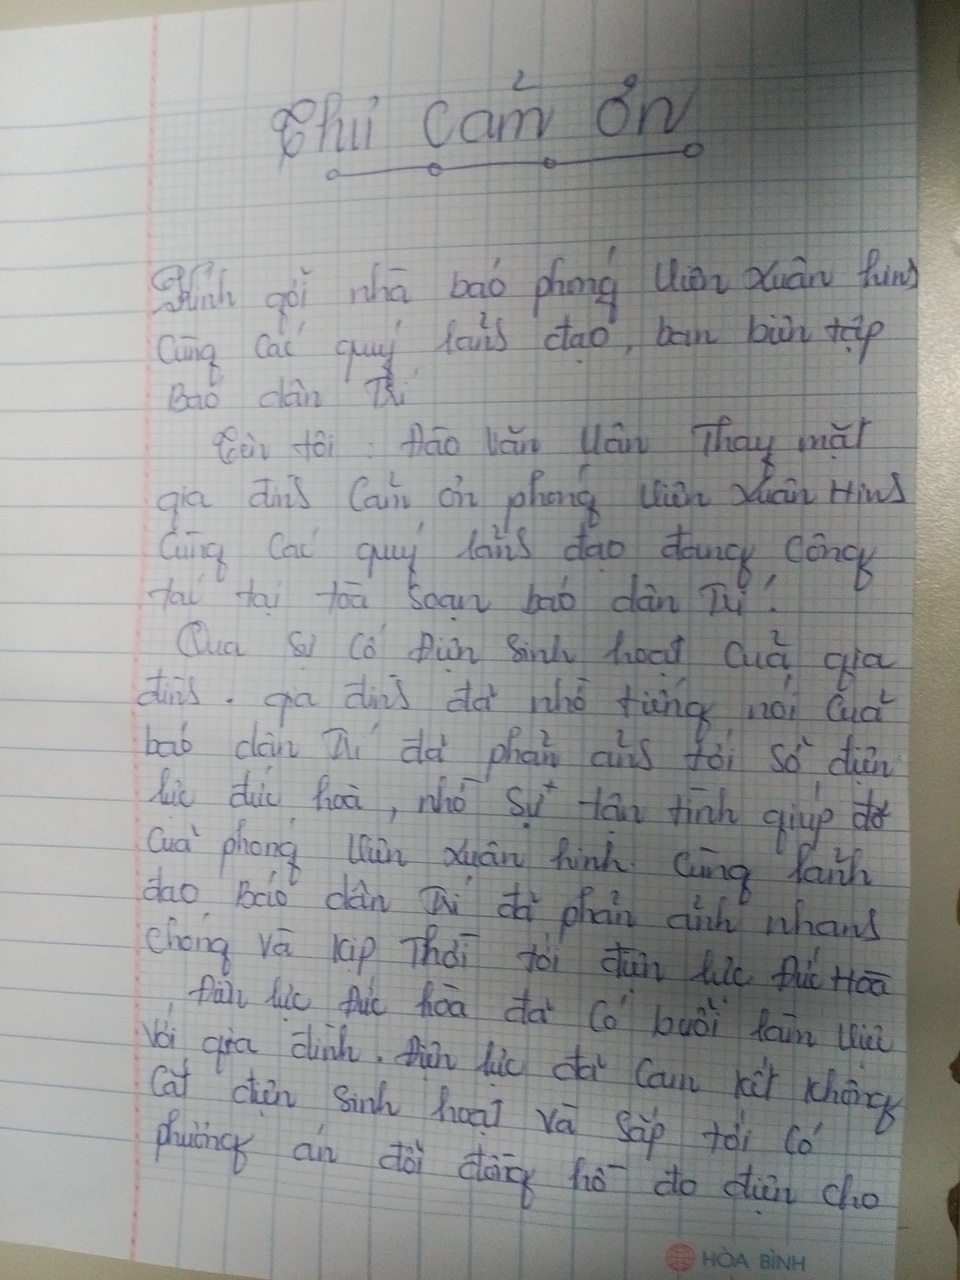 Thư cảm ơn
Kính gởi nhà báo phóng viên Xuân hinh
Cùng các quý lãnh đạo, ban biên tập
Báo dân Trí
Tên tôi: Đào Văn Vân Thay mặt
gia đình cảm ơn phóng viên Xuân Hinh
Cùng Các quý lãnh đạo đang công
tác tại tòa soạn báo dân Trí.
Qua sự cố Điện sinh hoạt của gia
đình. gia đình đã nhờ tiếng nói của
báo dân Trí đã phản ảnh tới sở điện
lực đức hoà, nhờ sự tân tình giúp đỡ
của phóng viên xuân hinh. cùng lãnh
đạo Báo dân Trí đã phản ảnh nhanh
chóng và kịp Thời tới điện lực Đức Hoà
Điện lực Đức hoà đã có buổi làm việc
với gia đình. Điện lực đã Cam kết không
cắt điện sinh hoạt và sắp tới có
phương án đổi đồng hồ đo điện cho
HÒA BÌNH